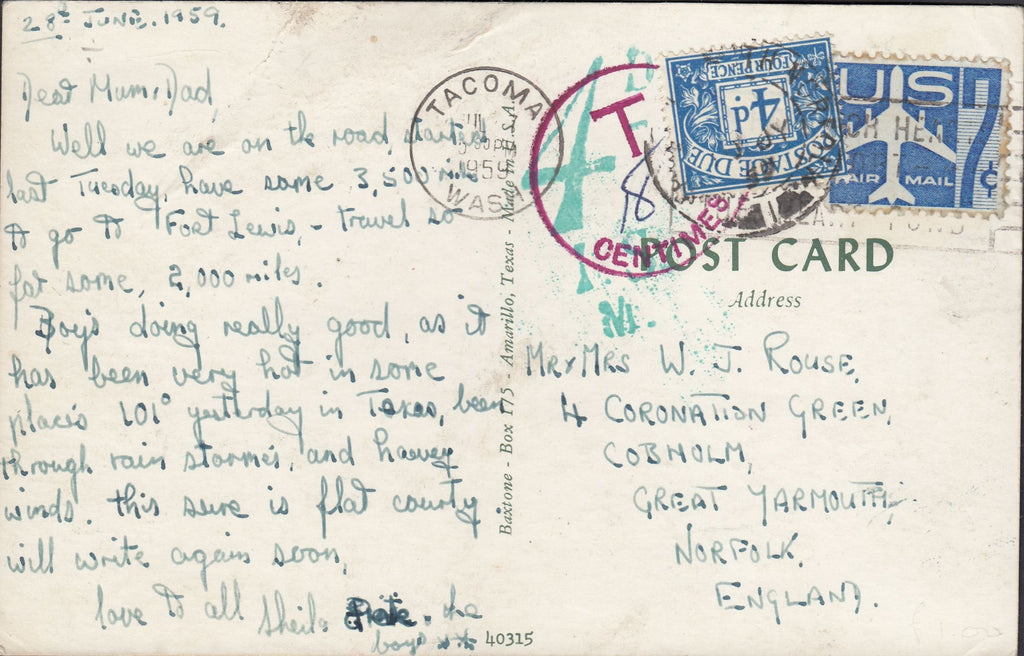 28th JUNE. 1959.
Dear Mum, Dad,
Well we are on the road, started
last Tuesday, have some 3,500 miles
to go to Fort Lewis, - travel so
far some, 2,000 miles.
Boy's doing really good, as it
has been very hot in some
places 101° yesterday in Texas, been
through rain storme's, and heavey
winds. this sure is flat county
will write again soon,
love to all Sheila . the
boys xx
40315
Baxtone - Box 175 - Amarillo, Texas - Made in U.S.A.
TACOMA
1959
WASH
T
18
CENTIMES
4
FOUR PENCE
4d.
POSTAGE DUE
US
AIR MAIL
7¢
POST CARD
Address
MR & MRS W. J. ROUSE,
4 CORONATION GREEN,
COBHOLM,
GREAT YARMOUTH,
NORFOLK.
ENGLAND.